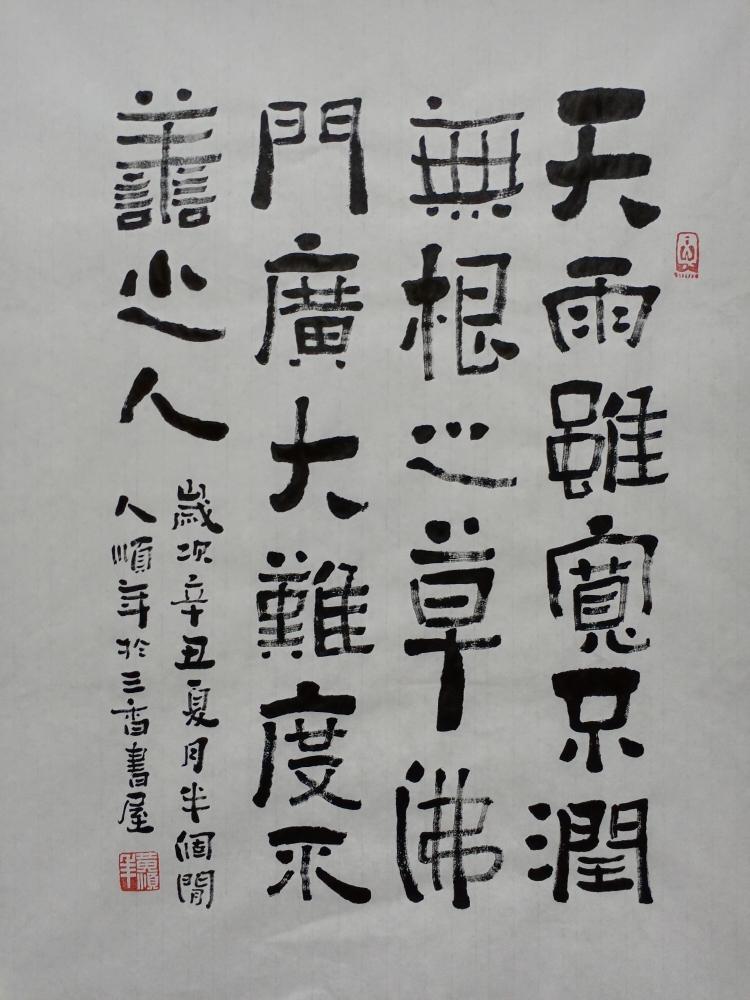 天雨雖寬不潤
無根之草佛
門廣大難度不
善之人
歲次辛丑夏月半個閒
人順年於三香書屋
黄順年